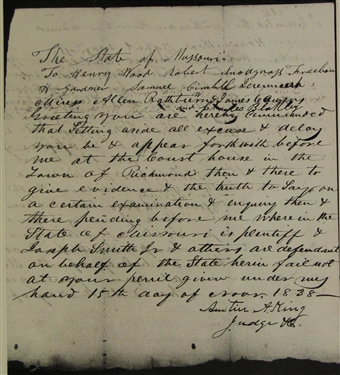 The State of Missouri
To Henry Wood Robert Snodgrass Freeborn
H Gardner Samuel Kimble Jeremiah
Myers Allen Rathbun & James C Owens
and Charles Blakly
Greeting you are hereby Commanded
that Setting aside all excuse & delay
you be & appear forthwith before
me at the Court house in the
Town of Richmond then & there to
give evidence & the truth to Say on
a certain examination & enquiry then &
there pending before me Where in the
State of Missouri is plentiff &
Joseph Smith Jr & others are defendant
on behalf of the State herein fail not
at your peril given under my
hand 15th day of Novr. 1838—
Austin A. King
Judge &c.